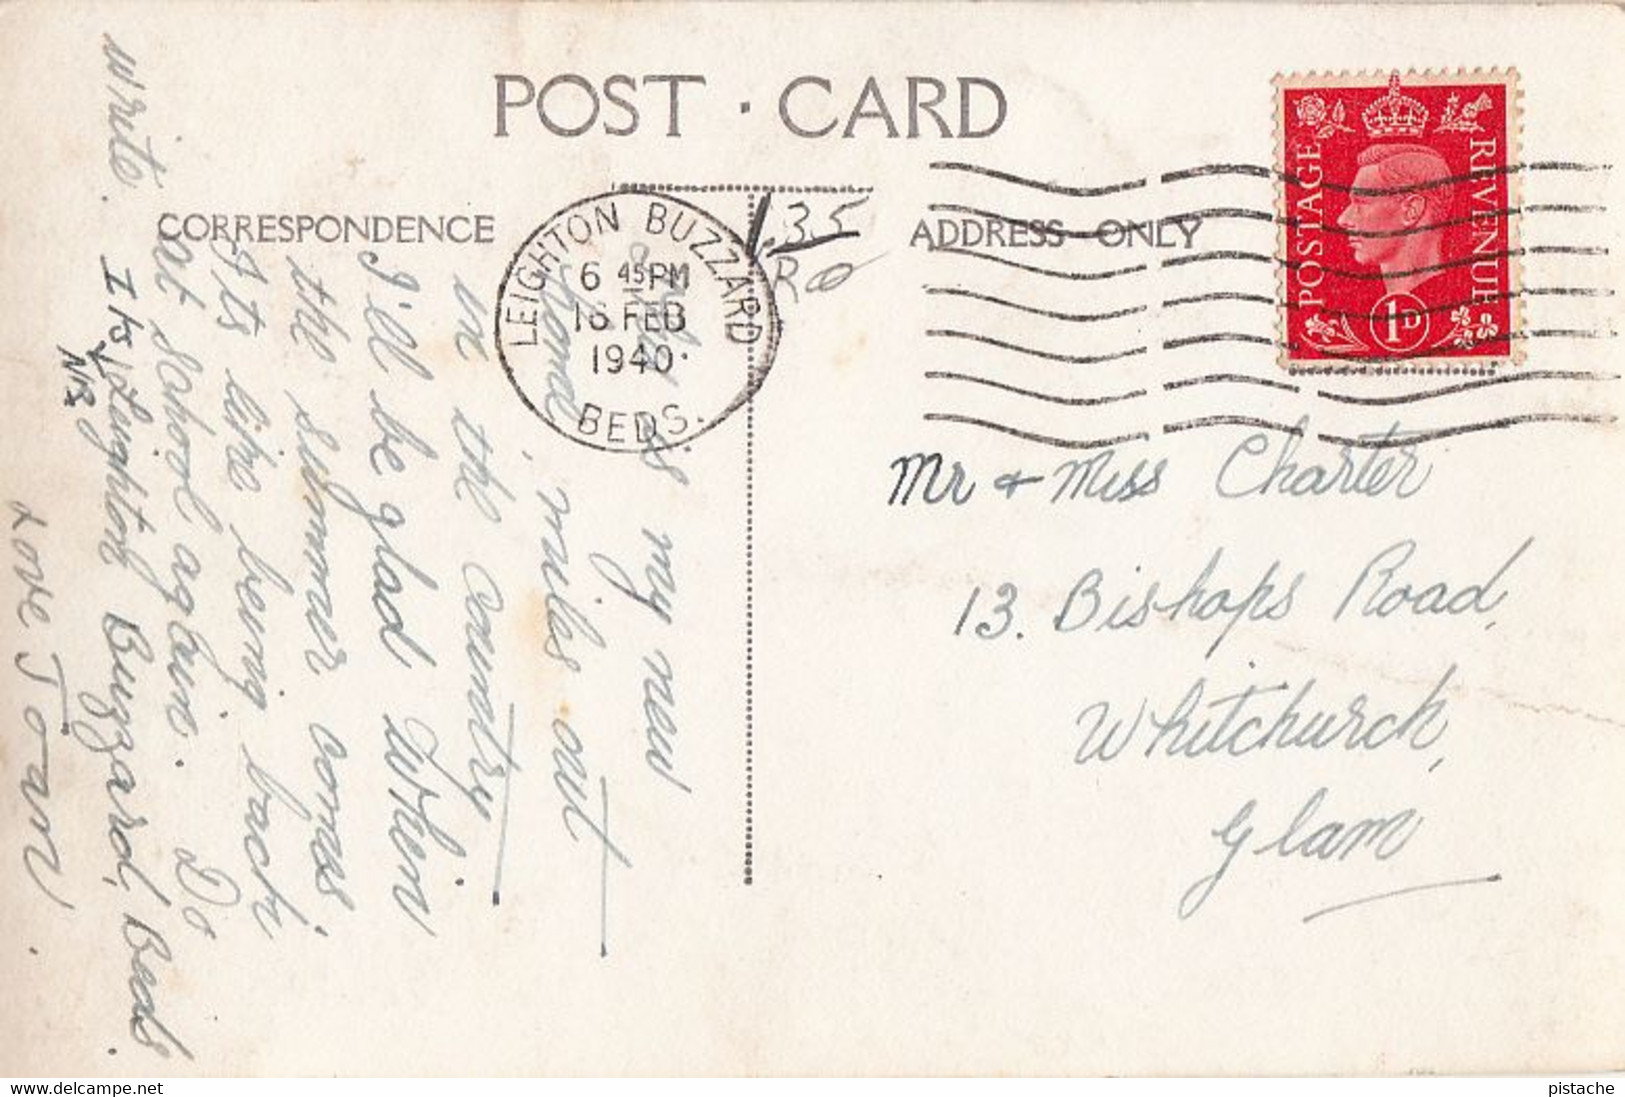 POST · CARD
CORRESPONDENCE
ADDRESS ONLY
LEIGHTON BUZZARD
6 45 PM
16 FEB
1940
BEDS.
POSTAGE
REVENUE
1D
.35
Mr & Miss Charter
13. Bishops Road,
Whitchurch,
Glam
This is my new
home, miles out
in the country.
I'll be glad when
the summer comes
Its like being back
at school again. Do
write. Its Leighton Buzzard, Beds.
Nr
Love Joan.
delcampe.net
pistache